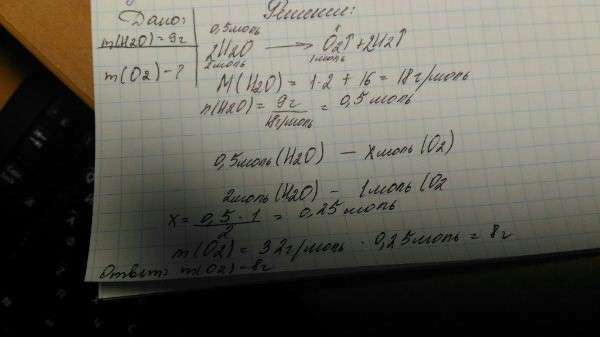 Дано:
m(H2O)=9г
m(O2)-?
Решение:
0,5моль x
2H2O → O2↑+2H2↑
2моль 1моль
M(H2O)=1·2+16=18г/моль
n(H2O)=9г/18г/моль=0,5моль
0,5моль(H2O) — xмоль(O2)
2моль(H2O) – 1моль(O2
x=0,5·1/2=0,25моль
m(O2)=32г/моль·0,25моль=8г
Ответ: m(O2)-8г